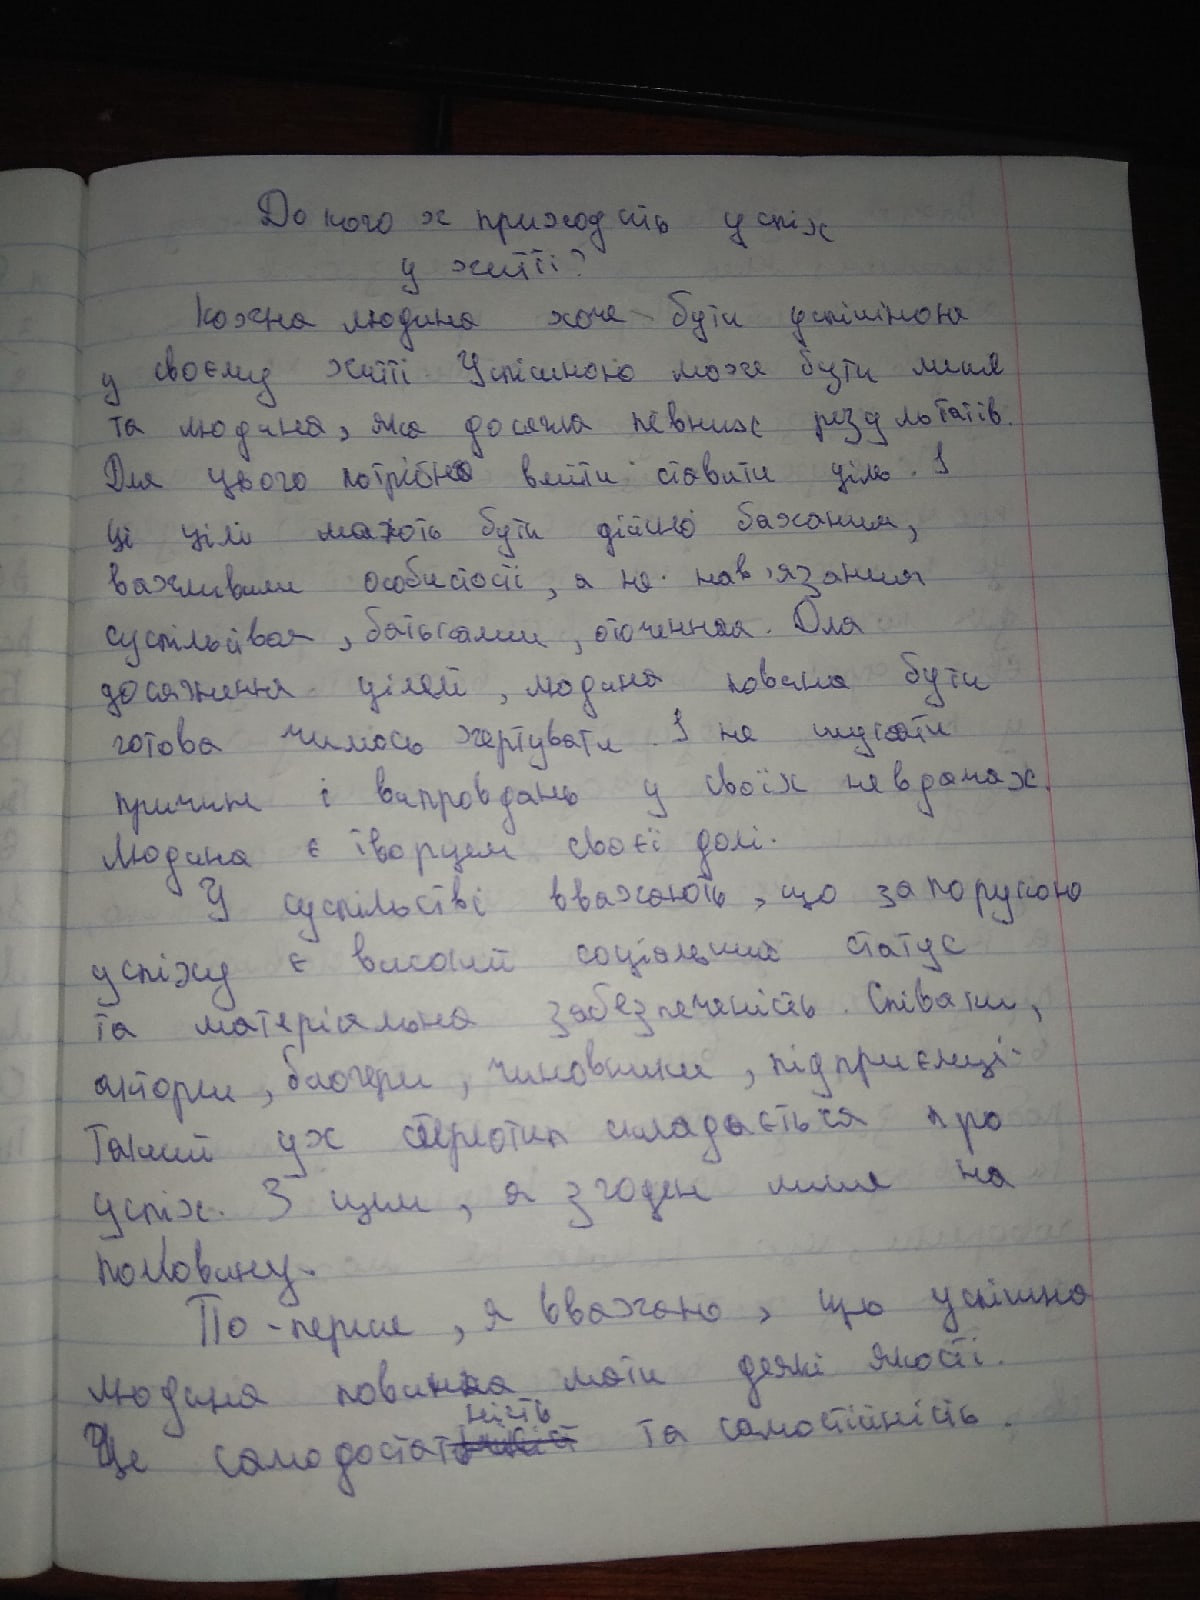 До кого ж приходить успіх
у житті?
Кожна людина хоче бути успішною
у своєму житті. Успішною може бути лише
та людина, яка досягла певних результатів.
Для цього потрібно вміти ставити ціль. І
ці цілі мають бути дійсно бажаним,
важливими особистості, а не нав'язаним
суспільством, батьками, оточенням. Для
досягнення цілей, людина повина бути
готова чимось жертувати. І не шукати
причин і виправдань у своїх невдачах.
Людина є творцем своєї долі.
У суспільстві вважають, що запорукою
успіху є високий соціальний статус
та матеріальна забезпеченість. Співаки,
актори, блогери, чиновники, підприємці.
Такий уж стереотип складається про
успіх. З цим, я згоден лише на
половину.
По-перше, я вважаю, що успішна
людина повинна мати деякі якості.
Це самодостатність та самостійність.